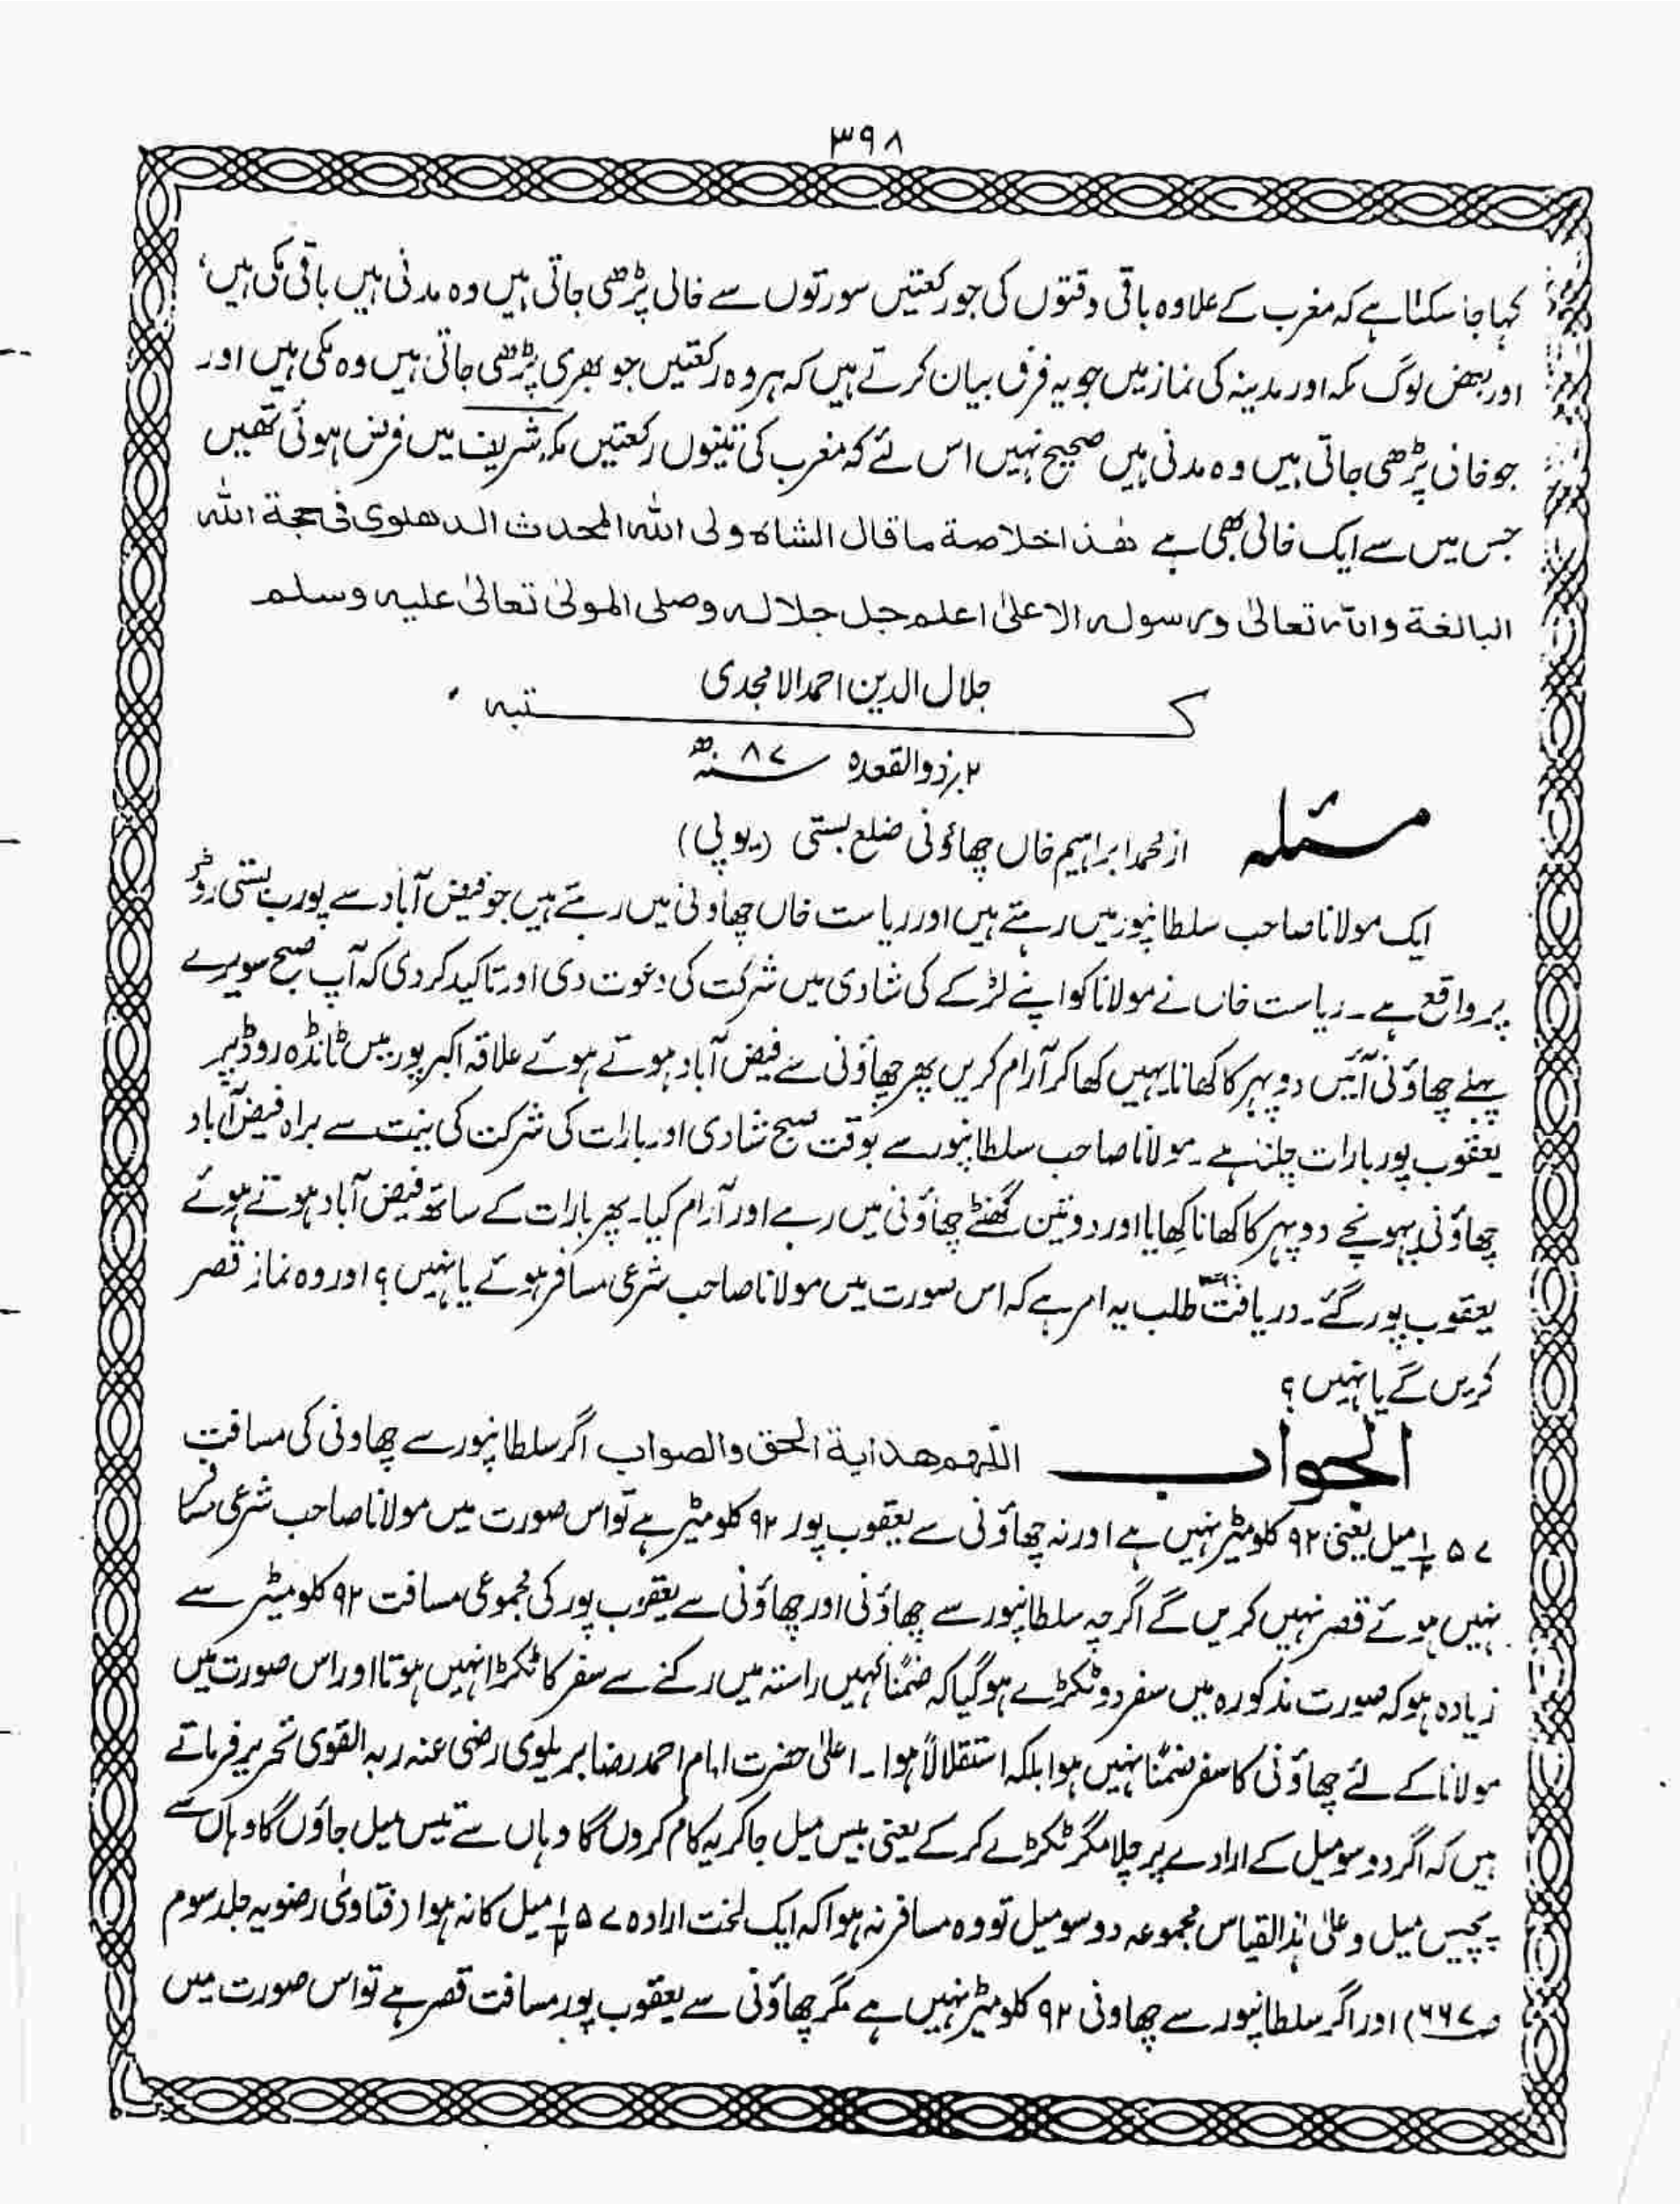 ۳۹۸
کہا جا سکتا ہے کہ مغرب کے علاوہ باقی وقتوں کی جو رکعتیں سورتوں سے خالی پڑھی جاتی ہیں وہ مدنی ہیں باقی مکی ہیں،
اور بعض لوگ مکہ اور مدینہ کی نماز میں جو یہ فرق بیان کرتے ہیں کہ ہر وہ رکعتیں جو بھری پڑھی جاتی ہیں وہ مکی ہیں اور
جو خالی پڑھی جاتی ہیں وہ مدنی ہیں صحیح نہیں اس لئے کہ مغرب کی تینوں رکعتیں مکہ شریف میں فرض ہوئی تھیں
جس میں سے ایک خالی بھی ہے ھٰذا خلاصۃ ما قال الشاہ ولی اللہ المحدث الدھلوی فی حجۃ اللہ
البالغۃ واللہ تعالیٰ ورسولہ الاعلیٰ اعلم جل جلالہ وصلی المولیٰ تعالیٰ علیہ وسلم
جلال الدین احمد الامجدی
کتبہ
۲؍ ذوالقعدہ سنہ ۸۷ھ
مسئلہ از محمد ابراہیم خاں چھاؤنی ضلع بستی (یوپی)
ایک مولانا صاحب سلطانپور میں رہتے ہیں اور ریاست خاں چھاونی میں رہتے ہیں جو فیض آباد سے پورب بستی روڈ
پر واقع ہے۔ ریاست خاں نے مولانا کو اپنے لڑکے کی شادی میں شرکت کی دعوت دی اور تاکید کر دی کہ آپ صبح سویرے
پہلے چھاؤنی آئیں دوپہر کا کھانا یہیں کھا کر آرام کریں پھر چھاؤنی سے فیض آباد ہوتے ہوئے علاقہ اکبرپور میں ٹانڈہ روڈ پر
یعقوب پور بارات چلنا ہے۔ مولانا صاحب سلطانپور سے بوقت صبح شادی اور بارات کی شرکت کی نیت سے براہ فیض آباد
چھاؤنی پہونچے دوپہر کا کھانا کھایا اور دو تین گھنٹے چھاؤنی میں رہے اور آرام کیا۔ پھر بارات کے ساتھ فیض آباد ہوتے ہوئے
یعقوب پور گئے۔ دریافت طلب یہ امر ہے کہ اس صورت میں مولانا صاحب شرعی مسافر ہوئے یا نہیں؟ اور وہ نماز قصر
کریں گے یا نہیں؟
الجواب اللّٰھم ھدایۃ الحق والصواب اگر سلطانپور سے چھاونی کی مسافت
۵۷ ۱/۲ میل یعنی ۹۲ کلومیٹر نہیں ہے اور نہ چھاؤنی سے یعقوب پور ۹۲ کلومیٹر ہے تو اس صورت میں مولانا صاحب شرعی مسافر
نہیں ہوئے قصر نہیں کریں گے اگرچہ سلطانپور سے چھاؤنی اور چھاؤنی سے یعقوب پور کی مجموعی مسافت ۹۲ کلومیٹر سے
زیادہ ہو کہ صورت مذکورہ میں سفر دو ٹکڑے ہو گیا کہ ضمنًا کہیں راستہ میں رکنے سے سفر کا ٹکڑا نہیں ہوتا اور اس صورت میں
مولانا کے لئے چھاؤنی کا سفر ضمنًا نہیں ہوا بلکہ استقلالًا ہوا۔ اعلیٰ حضرت امام احمد رضا بریلوی رضی عنہ ربہ القوی تحریر فرماتے
ہیں کہ اگر دو سو میل کے ارادے پر چلا مگر ٹکڑے کر کے یعنی بیس میل جا کر یہ کام کروں گا وہاں سے تیس میل جاؤں گا وہاں سے
پچیس میل وعلیٰ ہٰذا القیاس مجموعہ دو سو میل تو وہ مسافر نہ ہوا کہ ایک لخت ارادہ ۵۷ ۱/۲ میل کا نہ ہوا (فتاویٰ رضویہ جلد سوم
ص ۶۶۷) اور اگر سلطانپور سے چھاونی ۹۲ کلومیٹر نہیں ہے مگر چھاؤنی سے یعقوب پور مسافت قصر ہے تو اس صورت میں